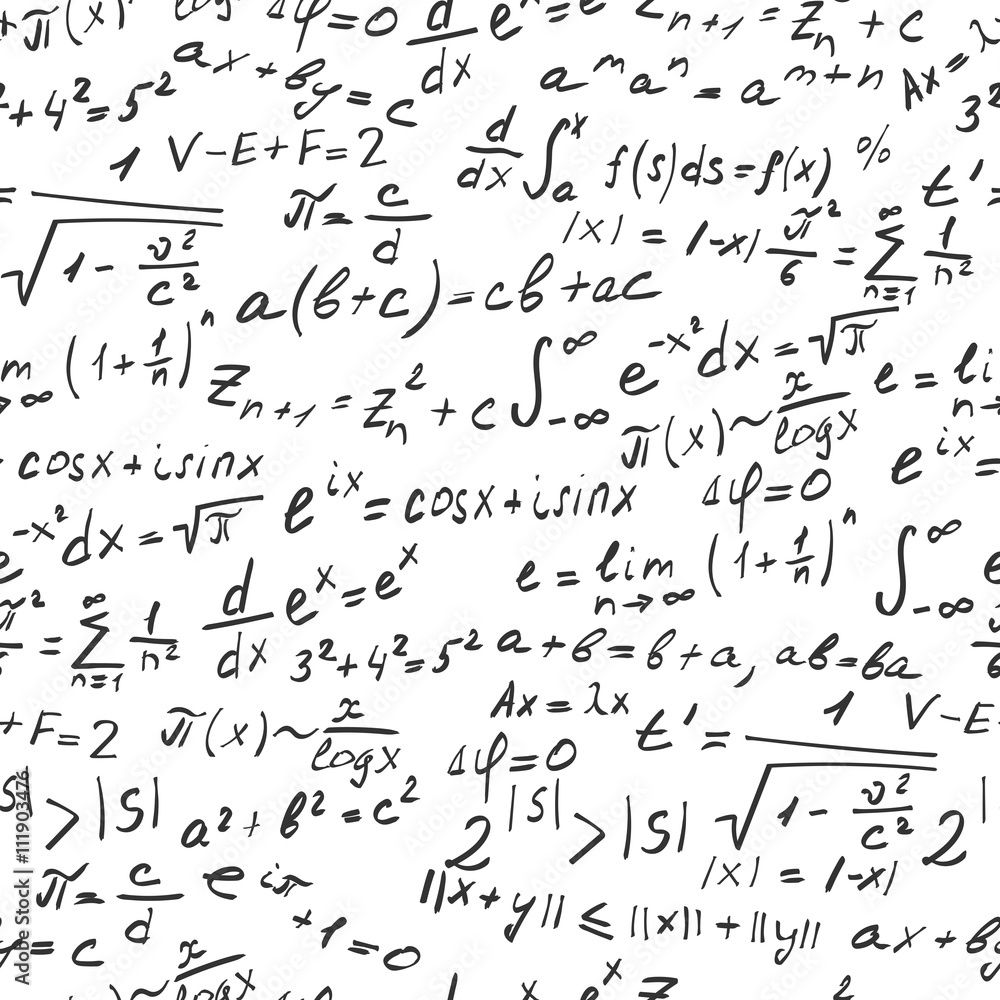 +π(x) log x Δφ=0 d/dx e^x=e z_{n+1}=z_n^2+c
ax+by=c
a^m a^n=a^{m+n} Ax=λ
3^2+4^2=5^2 3^2
1 V-E+F=2
d/dx ∫_a^x f(s)ds=f(x) %
t'=
=1/√(1-v^2/c^2) π=c/d
|x|=|-x| π^2/6=∑_{n=1}^∞ 1/n^2
a(b+c)=cb+ac
lim_{n→∞} (1+1/n)^n z_{n+1}=z_n^2+c ∫_{-∞}^∞ e^{-x^2}dx=√π
e=lim n→
π(x)~x/log x
cosx+isinx e^{ix}=cosx+isinx Δφ=0 e^{ix}=
e^{-x^2}dx=√π
e=lim_{n→∞} (1+1/n)^n ∫_{-∞}^∞ e
d/dx e^x=e^x
π^2/6=∑_{n=1}^∞ 1/n^2 3^2+4^2=5^2 a+b=b+a, ab=ba
Ax=λx
+F=2 π(x)~x/logx Δφ=0 t'=1/√(1-v^2/c^2) V-E
|S|>|S| a^2+b^2=c^2 2^{|S|}>|S| 2^|
|x|=|-x|
π=c/d e^{iπ}+1=0 ||x+y||≤||x||+||y|| ax+by
y=c x/logx
Adobe Stock | #111903476